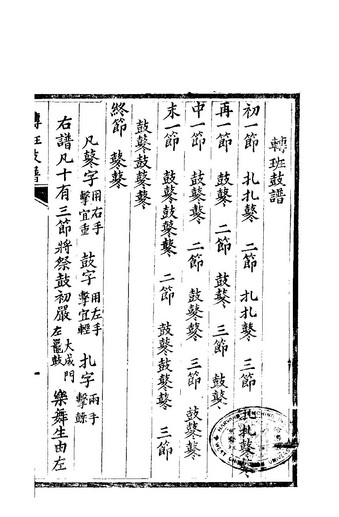 轉班鼓譜
初一節 扎扎鼕 二節 扎扎鼕 三節 扎扎鼕鼕
再一節 鼓鼕 二節 鼓鼕 三節 鼓鼕
中一節 鼓鼕鼕 二節 鼓鼕鼕 三節 鼓鼕鼕
末一節 鼓鼕鼓鼕鼕 二節 鼓鼕鼓鼕鼕 三節
鼓鼕鼓鼕鼕
終節 鼕鼕
凡鼕字用右手擊宜重 鼓字用左手擊宜輕 扎字兩手擊鼓
右譜凡十有三節將祭鼓初嚴大成門左鼉鼓樂舞生由左
轉班鼓譜